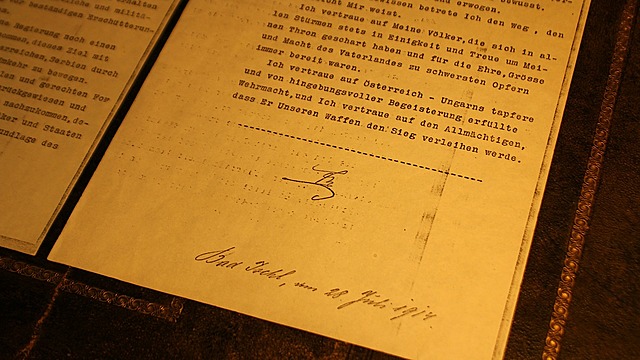 rhalten
liche und militä-
ur beständigen Erschütterun-
e Regierung noch einen
ommen, dieses Ziel mit
erreichen, Serbien durch
Umkehr zu bewegen.
len und gerechten For
urückgewiesen und
nachzukommen, de-
ker und Staaten
undlage des
erwogen.
bewusst,
cht Mir weist.
wissen betrete Ich den Weg, den
Ich vertraue auf Meine Völker, die sich in al-
len Stürmen stets in Einigkeit und Treue um Mei-
nen Thron geschart haben und für die Ehre, Grösse
und Macht des Vaterlandes zu schwersten Opfern
immer bereit waren.
Ich vertraue auf Österreich - Ungarns tapfere
und von hingebungsvoller Begeisterung erfüllte
Wehrmacht, und Ich vertraue auf den Allmächtigen,
dass Er Unseren Waffen den Sieg verleihen werde.
Bad Ischl, am 28 Juli 1914.